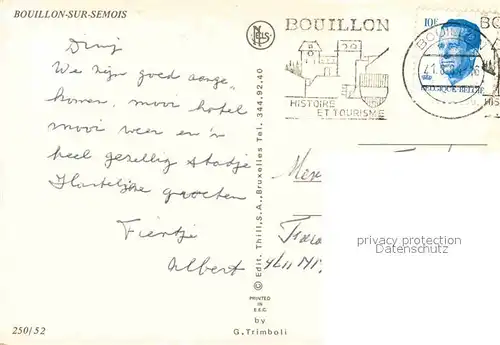 BOUILLON-SUR-SEMOIS
We zijn goed aange-
komen, mooi hotel
mooi weer en 'n
heel gezellig stadje
Hartelijke groeten
Fientje
Albert
250/52
NELS
© Edit. Thill, S.A., Bruxelles Tel. 344.92.40
PRINTED
IN
E.E.C.
by
G. Trimboli
BOUILLON
HISTOIRE
ET TOURISME
10F
BELGIQUE-BELGIË
BO
HIS
privacy protection
Datenschutz